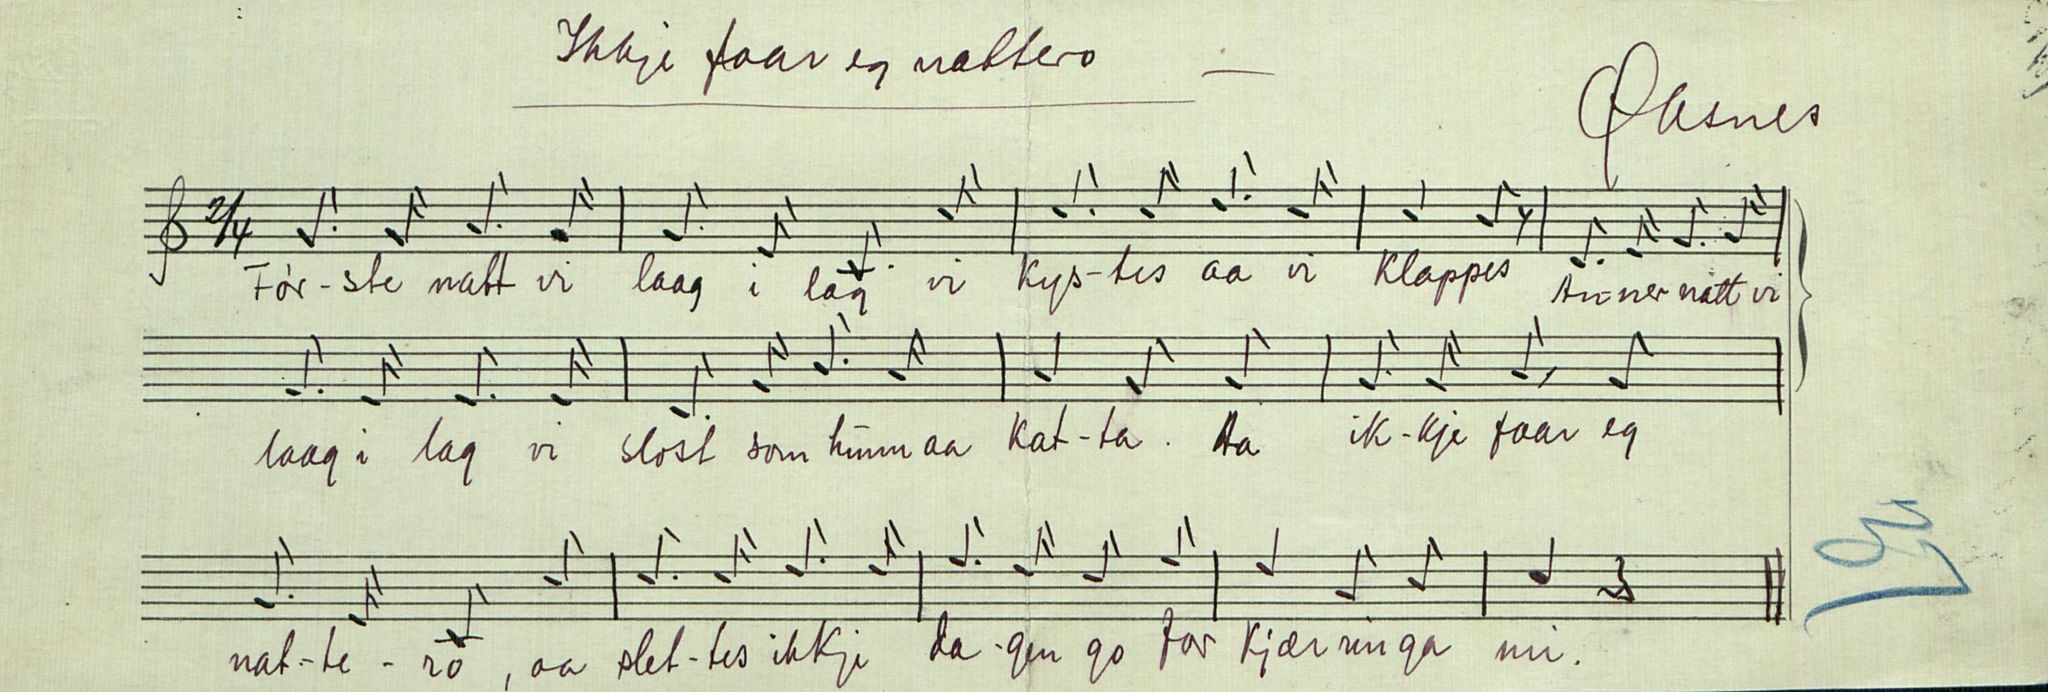 Ikkje faar eg nattero
Øksnes
2/4
Før-ste natt vi laag i lag vi kys-tes aa vi klappes An-ner natt vi
laag i lag vi slost som hunn aa kat-ta. Aa ik-kje faar eg
nat-te-ro, aa slet-tes ikkje da-gen go for kjærringa mi.